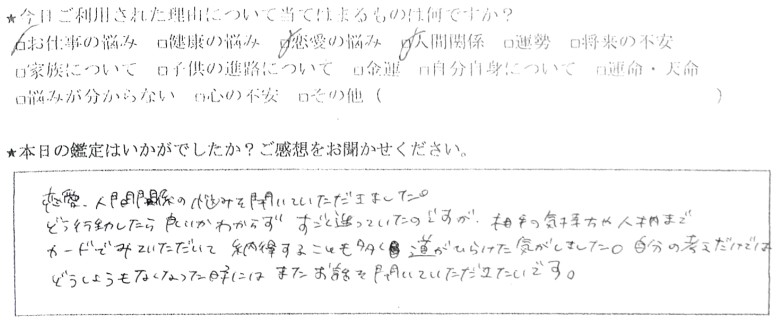 ★今日ご利用された理由について当てはまるものは何ですか？
□お仕事の悩み □健康の悩み □恋愛の悩み □人間関係 □運勢 □将来の不安
□家族について □子供の進路について □金運 □自分自身について □運命・天命
□悩みが分からない □心の不安 □その他（　　　）
★本日の鑑定はいかがでしたか？ご感想をお聞かせください。
恋愛、人間関係の悩みを聞いていただきました。
どう行動したら良いかわからず すごく迷っていたのですが、相手の気持ちや人柄まで
カードでみていただいて 納得することも多く 道がひらけた気がしました。自分の考えだけでは
どうしようもなくなった時には またお話を聞いていただきたいです。